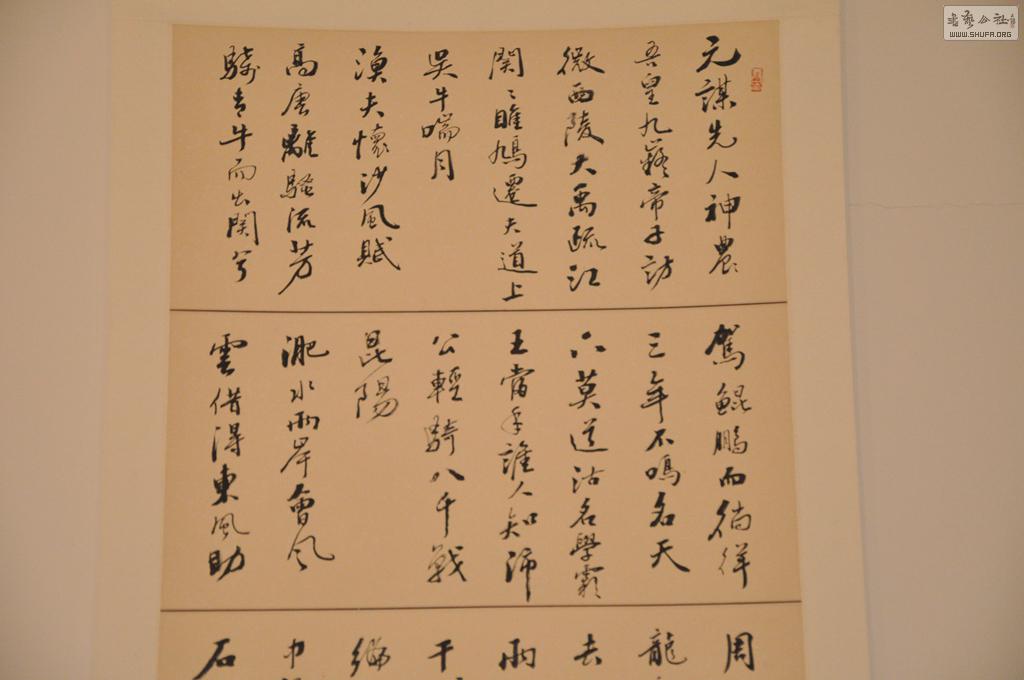 元謀先人神農
吾皇九嶷帝子訪
微西陵大禹疏江
関〻雎鳩遷夫道上
吳牛喘月
漁夫懷沙風賦
高唐離騷流芳
騎青牛而出関兮
駕鯤鵬而徜徉
三年不鳴名天
下莫道沽名學霸
王當年誰人知沛
公輕騎八千戰
昆陽
淝水兩岸會風
雲借得東風助
周
龍
去
兩
干
編
巾
石
书艺公社
WWW.SHUFA.ORG